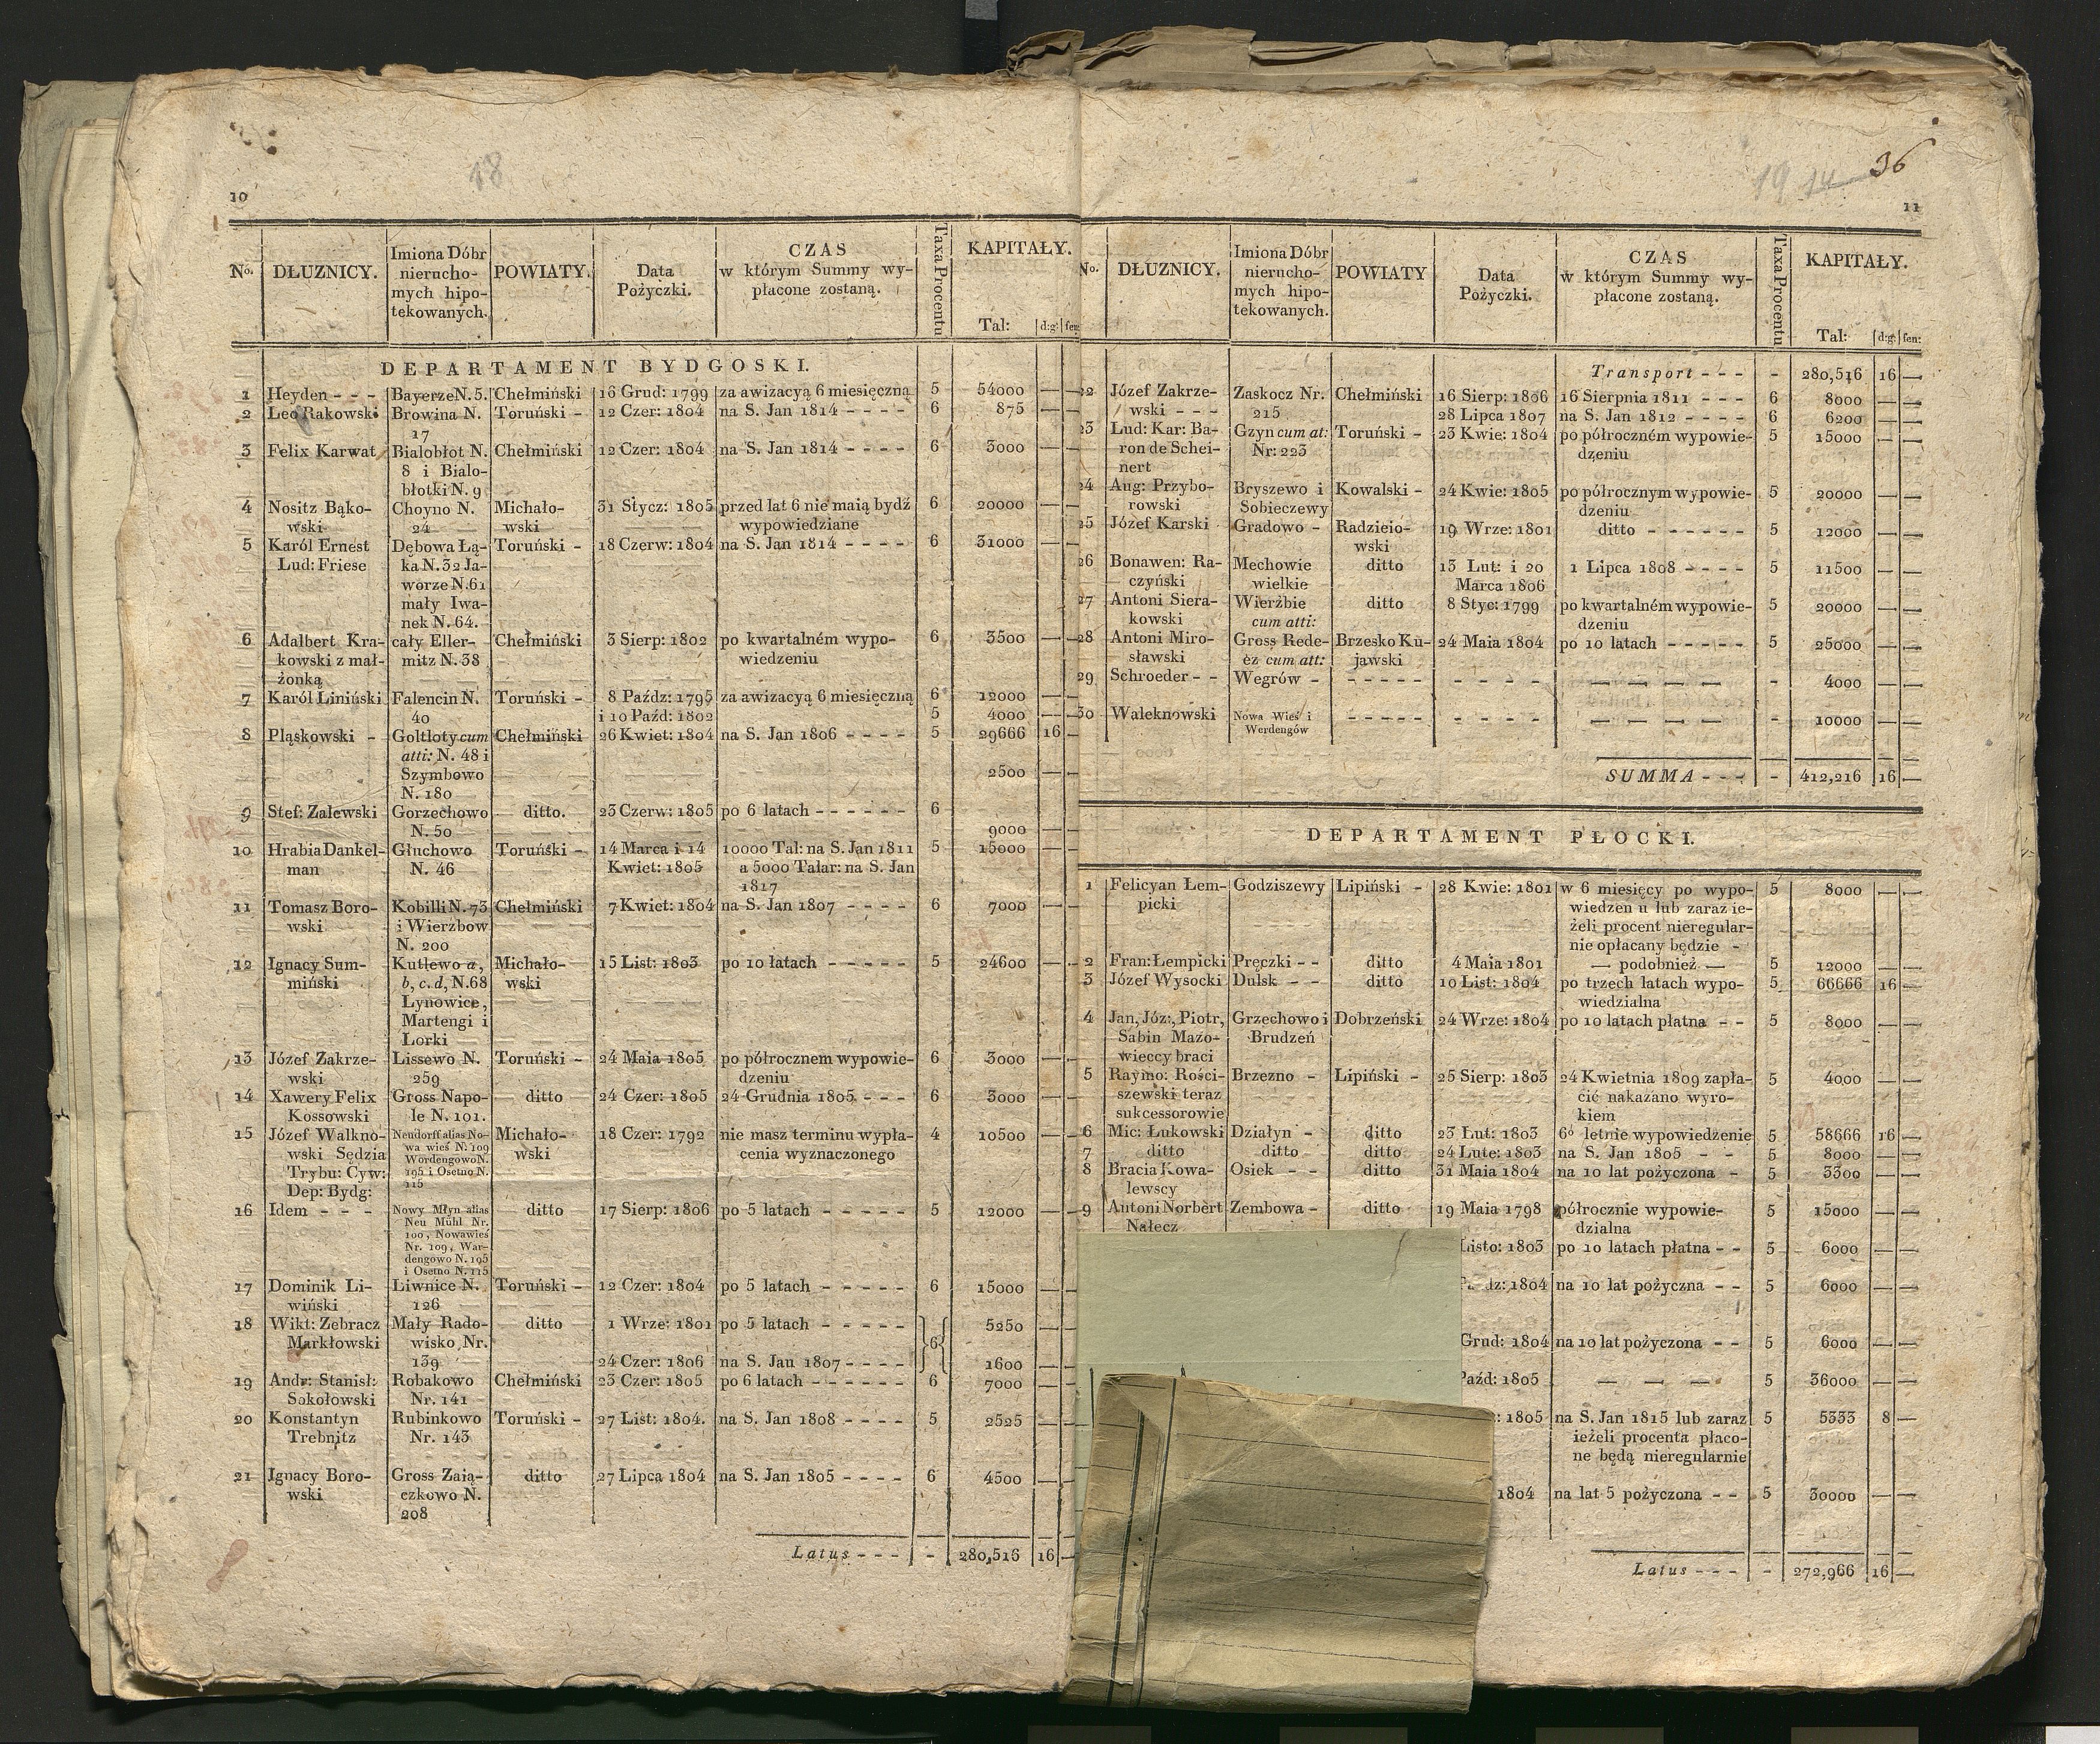 18
10
No. DŁUZNICY. Imiona Dóbr nieruchomych hipotekowanych. POWIATY. Data Pożyczki. CZAS w którym Summy wypłacone zostaną. Taxa Procentu KAPITAŁY. Tal: d:g: fen:
DEPARTAMENT BYDGOSKI.
1 Heyden - - - Bayerze N. 5. Chełmiński 16 Grud: 1799 za awizacyą 6 miesięczną 5 54000 — —
2 Leo Rakowski Browina N. Toruński - 12 Czer: 1804 na S. Jan 1814 - - - - 6 875 — —
17
3 Felix Karwat Bialobłot N. Chełmiński 12 Czer: 1804 na S. Jan 1814 - - - - 6 3000 — —
8 i Bialo-
błotki N. 9
4 Nositz Bąko- Choyno N. Michało- 31 Stycz: 1805 przed lat 6 nie maią bydź 6 20000 — —
wski 24 wski wypowiedziane
5 Karól Ernest Dębowa Łą- Toruński - 18 Czerw: 1804 na S. Jan 1814 - - - - 6 31000 — —
Lud: Friese ka N. 32 Ja-
worze N. 61
mały Iwa-
nek N. 64.
6 Adalbert Kra- cały Eller- Chełmiński 3 Sierp: 1802 po kwartalném wypo- 6 3500 — —
kowski z mał- mitz N. 38 wiedzeniu
żonką
7 Karól Liniński Falencin N. Toruński - 8 Paźdz: 1795 za awizacyą 6 miesięczną 6 12000 — —
40 i 10 Paźd: 1802 5 4000 — —
8 Pląskowski - Goltloty cum Chełmiński 26 Kwiet: 1804 na S. Jan 1806 - - - - 5 29666 16 —
atti: N. 48 i
Szymbowo 2500 — —
N. 180
9 Stef: Zalewski Gorzechowo ditto. 23 Czerw: 1805 po 6 latach - - - - - - 6
N. 50 9000 — —
10 Hrabia Dankel- Głuchowo Toruński - 14 Marca i 14 10000 Tal: na S. Jan 1811 5 15000 — —
man N. 46 Kwiet: 1805 a 5000 Talar: na S. Jan
1817
11 Tomasz Boro- Kobilli N. 73 Chełmiński 7 Kwiet: 1804 na S. Jan 1807 - - - - 6 7000 — —
wski i Wierzbow
N. 200
12 Ignacy Sum- Kutlewo a, Michało- 15 List: 1803 po 10 latach - - - - - 5 24600 — —
miński b, c. d, N. 68 wski
Lynowice,
Martengi i
Lorki
13 Józef Zakrze- Lissewo N. Toruński - 24 Maia 1805 po półrocznem wypowie- 6 3000 — —
wski 259 dzeniu
14 Xawery Felix Gross Napo- ditto 24 Czer: 1805 24 Grudnia 1805 - - - 6 3000 — —
Kossowski le N. 101.
15 Józef Walkno- Neudorff alias No- Michało- 18 Czer: 1792 nie masz terminu wypła- 4 10500 — —
wski Sędzia wa wieś N. 109 wski cenia wyznaczonego
Trybu: Cyw: Wordengowo N.
Dep: Bydg: 195 i Osetno N.
115
16 Idem - - - Nowy Młyn alias ditto 17 Sierp: 1806 po 5 latach - - - - - 5 12000 — —
Neu Mühl Nr.
100, Nowawieś
Nr. 109, War-
dengowo N. 195
i Osetno N. 115
17 Dominik Li- Liwnice N. Toruński - 12 Czer: 1804 po 5 latach - - - - - 6 15000 — —
wiński 126
18 Wikt: Zebracz Mały Rado- ditto 1 Wrze: 1801 po 5 latach - - - - - }6{ 5250 — —
Markłowski wisko, Nr.
139 24 Czer: 1806 na S. Jan 1807 - - - - 1600 — —
19 Andr: Stanisł: Robakowo Chełmiński 23 Czer: 1805 po 6 latach - - - - - - 6 7000 — —
Sokołowski Nr. 141
20 Konstantyn Rubinkowo Toruński - 27 List: 1804. na S. Jan 1808 - - - - 5 2525 — —
Trebnitz Nr. 143
21 Ignacy Boro- Gross Zaią- ditto 27 Lipca 1804 na S. Jan 1805 - - - - 6 4500 — —
wski czkowo N.
208
Latus - - - - 280,516 16 —
19 14 36
11
No. DŁUZNICY. Imiona Dóbr nieruchomych hipotekowanych. POWIATY Data Pożyczki. CZAS w którym Summy wypłacone zostaną. Taxa Procentu KAPITAŁY. Tal: d:g: fen:
Transport - - - - 280,516 16 —
22 Józef Zakrze- Zaskocz Nr. Chełmiński 16 Sierp: 1806 16 Sierpnia 1811 - - - 6 8000 — —
wski - - - 215 28 Lipca 1807 na S. Jan 1812 - - - - 6 6200 — —
23 Lud: Kar: Ba- Gzyn cum at: Toruński - 23 Kwie: 1804 po półroczném wypowie- 5 15000 — —
ron de Schei- Nr: 223 dzeniu
nert
24 Aug: Przybo- Bryszewo i Kowalski - 24 Kwie: 1805 po półrocznym wypowie- 5 20000 — —
rowski Sobieczewy dzeniu
25 Józef Karski Gradowo - Radzieio- 19 Wrze: 1801 ditto - - - - - - 5 12000 — —
wski
26 Bonawen: Ra- Mechowie ditto 13 Lut: i 20 1 Lipca 1808 - - - - 5 11500 — —
czyński wielkie Marca 1806
27 Antoni Siera- Wierżbie ditto 8 Styc: 1799 po kwartalném wypowie- 5 20000 — —
kowski cum atti: dzeniu
28 Antoni Miro- Gross Rede- Brzesko Ku- 24 Maia 1804 po 10 latach - - - - - 5 25000 — —
sławski cz cum att: jawski
29 Schroeder - - Wegrów - - - - - - - - - - — — — — - 4000 — —
30 Waleknowski Nowa Wieś i - - - - - - - - - — — — — - 10000 — —
Werdengów
SUMMA - - - - 412,216 16 —
DEPARTAMENT PŁOCKI.
1 Felicyan Łem- Godziszewy Lipiński - 28 Kwie: 1801 w 6 miesięcy po wypo- 5 8000 — —
picki wiedzen u lub zaraz ie-
żeli procent nieregular-
nie opłacany będzie -
2 Fran: Łempicki Pręczki - - ditto 4 Maia 1801 — podobnież — 5 12000 — —
3 Józef Wysocki Dulsk - - ditto 10 List: 1804 po trzech latach wypo- 5 66666 16 —
wiedzialna
4 Jan, Józ:, Piotr, Grzechowo i Dobrzeński 24 Wrze: 1804 po 10 latach płatna - - 5 8000 — —
Sabin Mazo- Brudzeń
wieccy braci
5 Raymo: Rości- Brzezno - Lipiński - 25 Sierp: 1803 24 Kwietnia 1809 zapła- 5 4000 — —
szewski teraz cić nakazano wyro-
sukcessorowie kiem
6 Mic: Łukowski Działyn - ditto 23 Lut: 1803 6o letnie wypowiedzenie 5 58666 16 —
7 ditto ditto ditto 24 Lute: 1803 na S. Jan 1805 - - 5 8000 — —
8 Bracia Kowa- Osiek - - ditto 31 Maia 1804 na 10 lat pożyczona - 5 3300 — —
lewscy
9 Antoni Norbert Zembowa - ditto 19 Maia 1798 półrocznie wypowie- 5 15000 — —
Nałecz dzialna
Listo: 1803 po 10 latach płatna - - 5 6000 — —
dz: 1804 na 10 lat pożyczna - - 5 6000 — —
Grud: 1804 na 10 lat pożyczona - - 5 6000 — —
Paźd: 1805 — — — 5 36000 — —
: 1805 na S. Jan 1815 lub zaraz 5 5333 8 —
ieżeli procenta płaco-
ne będą nieregularnie
1804 na lat 5 pożyczona - - 5 30000 — —
Latus - - - - 272,966 16 —